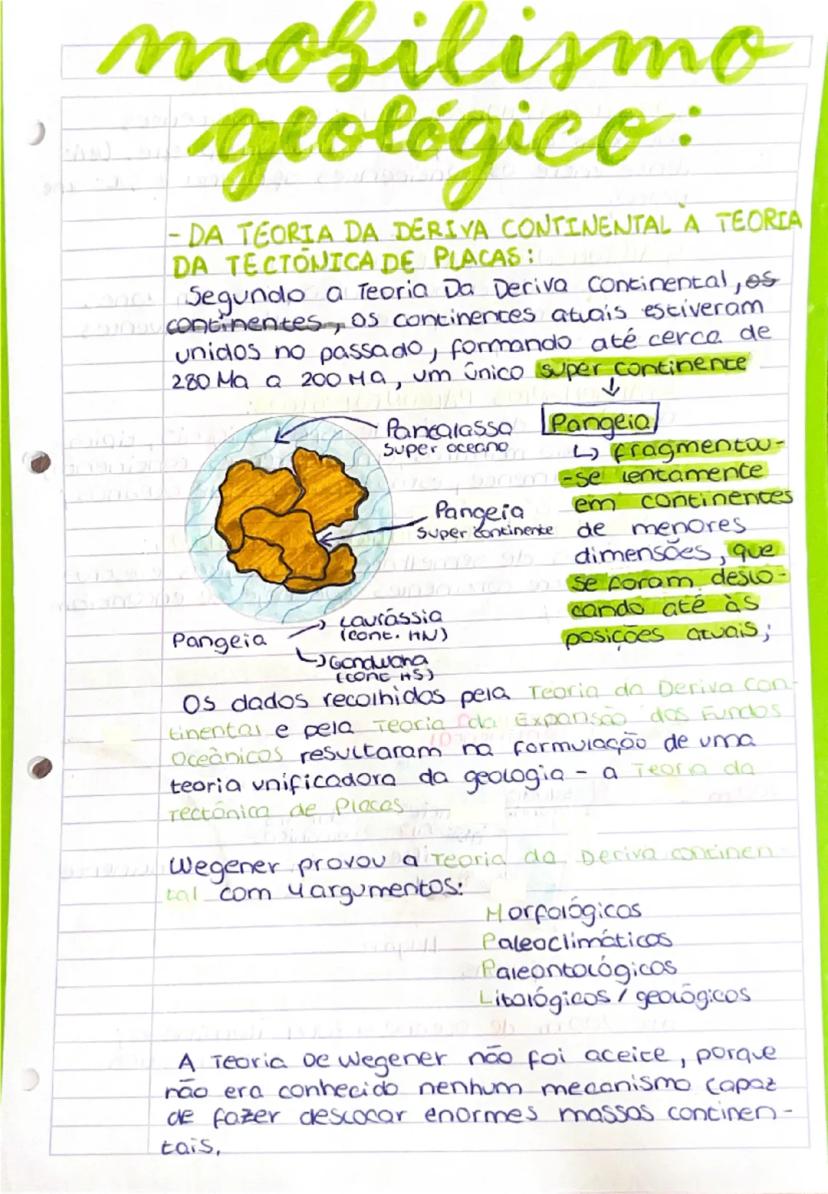 mobilismo
geológico:
- DA TEORIA DA DERIVA CONTINENTAL À TEORIA
DA TECTÓNICA DE PLACAS:
Segundo a Teoria Da Deriva Continental, os
continentes, os continentes atuais estiveram
unidos no passado, formando até cerca de
280 Ma a 200 MA, um único super continente
Pangeia
↳ fragmentou-
-se lentamente
em continentes
de menores
dimensões, que
se foram deslo-
cando até às
posições atuais;
Pantalassa
super oceano
Pangeia
super continente
Pangeia
Laurássia
(cont. HN)
Gondwana
(cont HS)
Os dados recolhidos pela Teoria da Deriva Con-
tinental e pela Teoria da Expansão dos Fundos
Oceânicos resultaram na formulação de uma
teoria unificadora da geologia - a Teoria da
Tectónica de Placas
Wegener provou a Teoria da Deriva continen
tal com 4 argumentos:
Morfológicos
Paleoclimáticos
Paleontológicos
Litológicos / geológicos
A Teoria De Wegener não foi aceite, porque
não era conhecido nenhum mecanismo capaz
de fazer deslocar enormes massas continen-
tais.